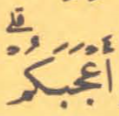 أَعْجَبَكُمْ ۗ